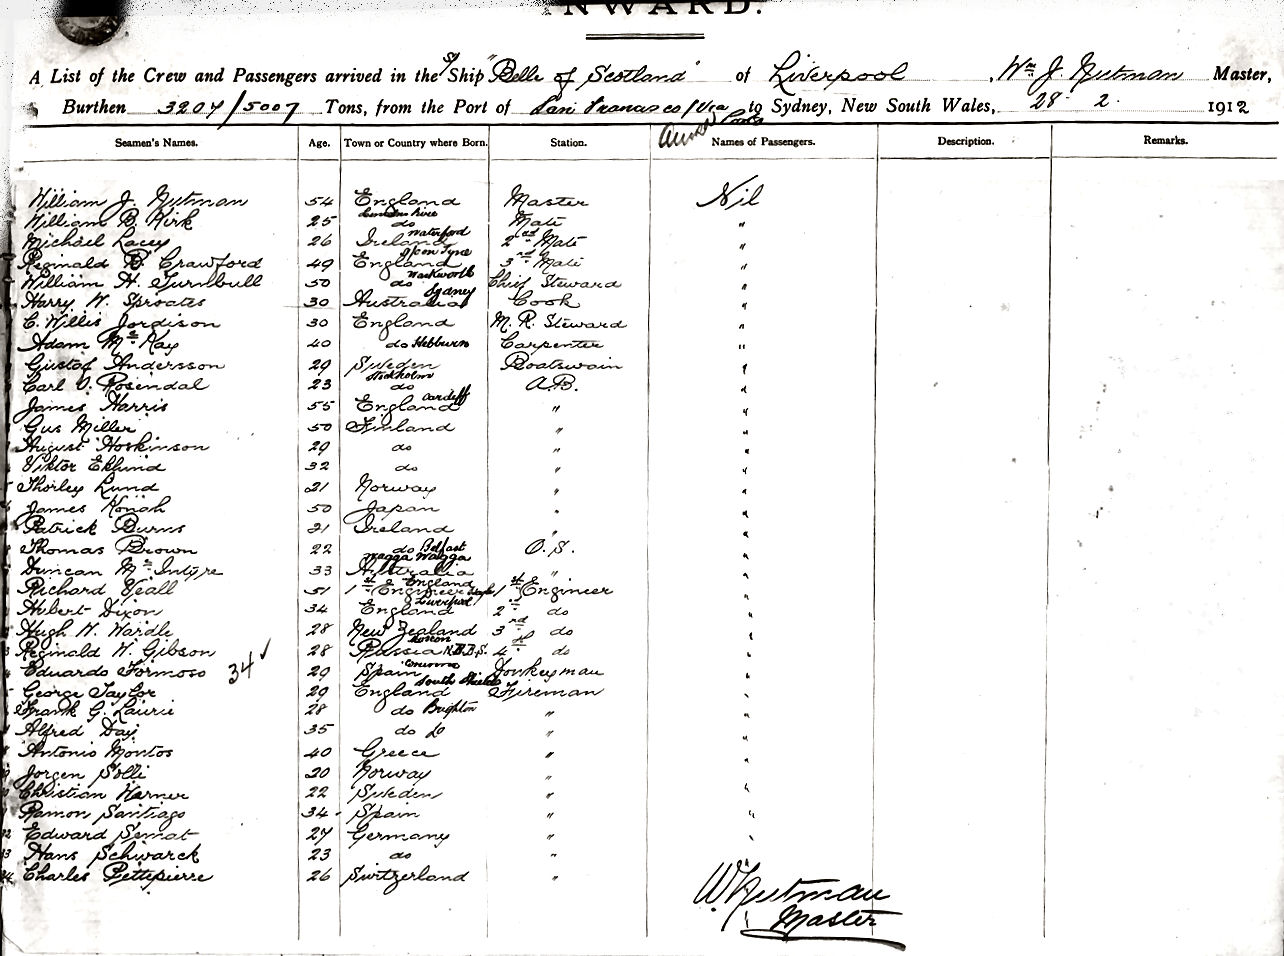 INWARD.
A List of the Crew and Passengers arrived in the SS Ship "Belle of Scotland" of Liverpool, Wm J. Nutman Master,
Burthen 3207/5007 Tons, from the Port of San Francisco/via Ports to Sydney, New South Wales, 28 2. 1912
Seamen's Names. Age. Town or Country where Born. Station. Names of Passengers. Description. Remarks.
William J. Nutman 54 England Master Nil
William B. Kirk 25 do Mate "
Michael Lacey 26 Ireland Waterford 2nd Mate "
Reginald B. Crawford 49 England 3rd Mate "
William H. Turnbull 50 do Warkworth Chief Steward "
Harry W. Sproates 30 Australia Sydney Cook "
C. Willis Jordison 30 England M. R. Steward "
Adam Mc Kay 40 do Hebburn Carpenter "
Gustaf Andersson 29 Sweden Boatswain "
Carl O. Rosendal 23 Stockholm do A.B. "
James Harris 55 England Cardiff " "
Gus Miller 50 Finland " "
August Hoskinson 29 do " "
Viktor Eklund 32 do " "
Thorley Lund 21 Norway " "
James Konah 50 Japan " "
Patrick Burns 21 Ireland " "
Thomas Brown 22 do Belfast O.S. "
Duncan Mc Intyre 33 Wagga Wagga Australia " "
Richard Veall 51 1st Engineer England 1st Engineer "
Hubert Dixon 34 England Liverpool 2nd do "
Hugh W. Wardle 28 New Zealand 3rd do "
Reginald W. Gibson 28 Russia N.B.S. 4th do "
Eduardo Formoso 34 ✓ 29 Spain Corunna Donkeyman "
George Taylor 29 England South Shields Fireman "
Frank G. Laurie 28 do Brighton " "
Alfred Day 35 do Do " "
Antonio Montos 40 Greece " "
Jorgen Solli 20 Norway " "
Christian Warner 22 Sweden " "
Ramon Santiago 34 Spain " "
Edward Semat 27 Germany " "
Hans Schwarck 23 do " "
Charles Pettepierre 26 Switzerland " "
W. J. Nutman
Master